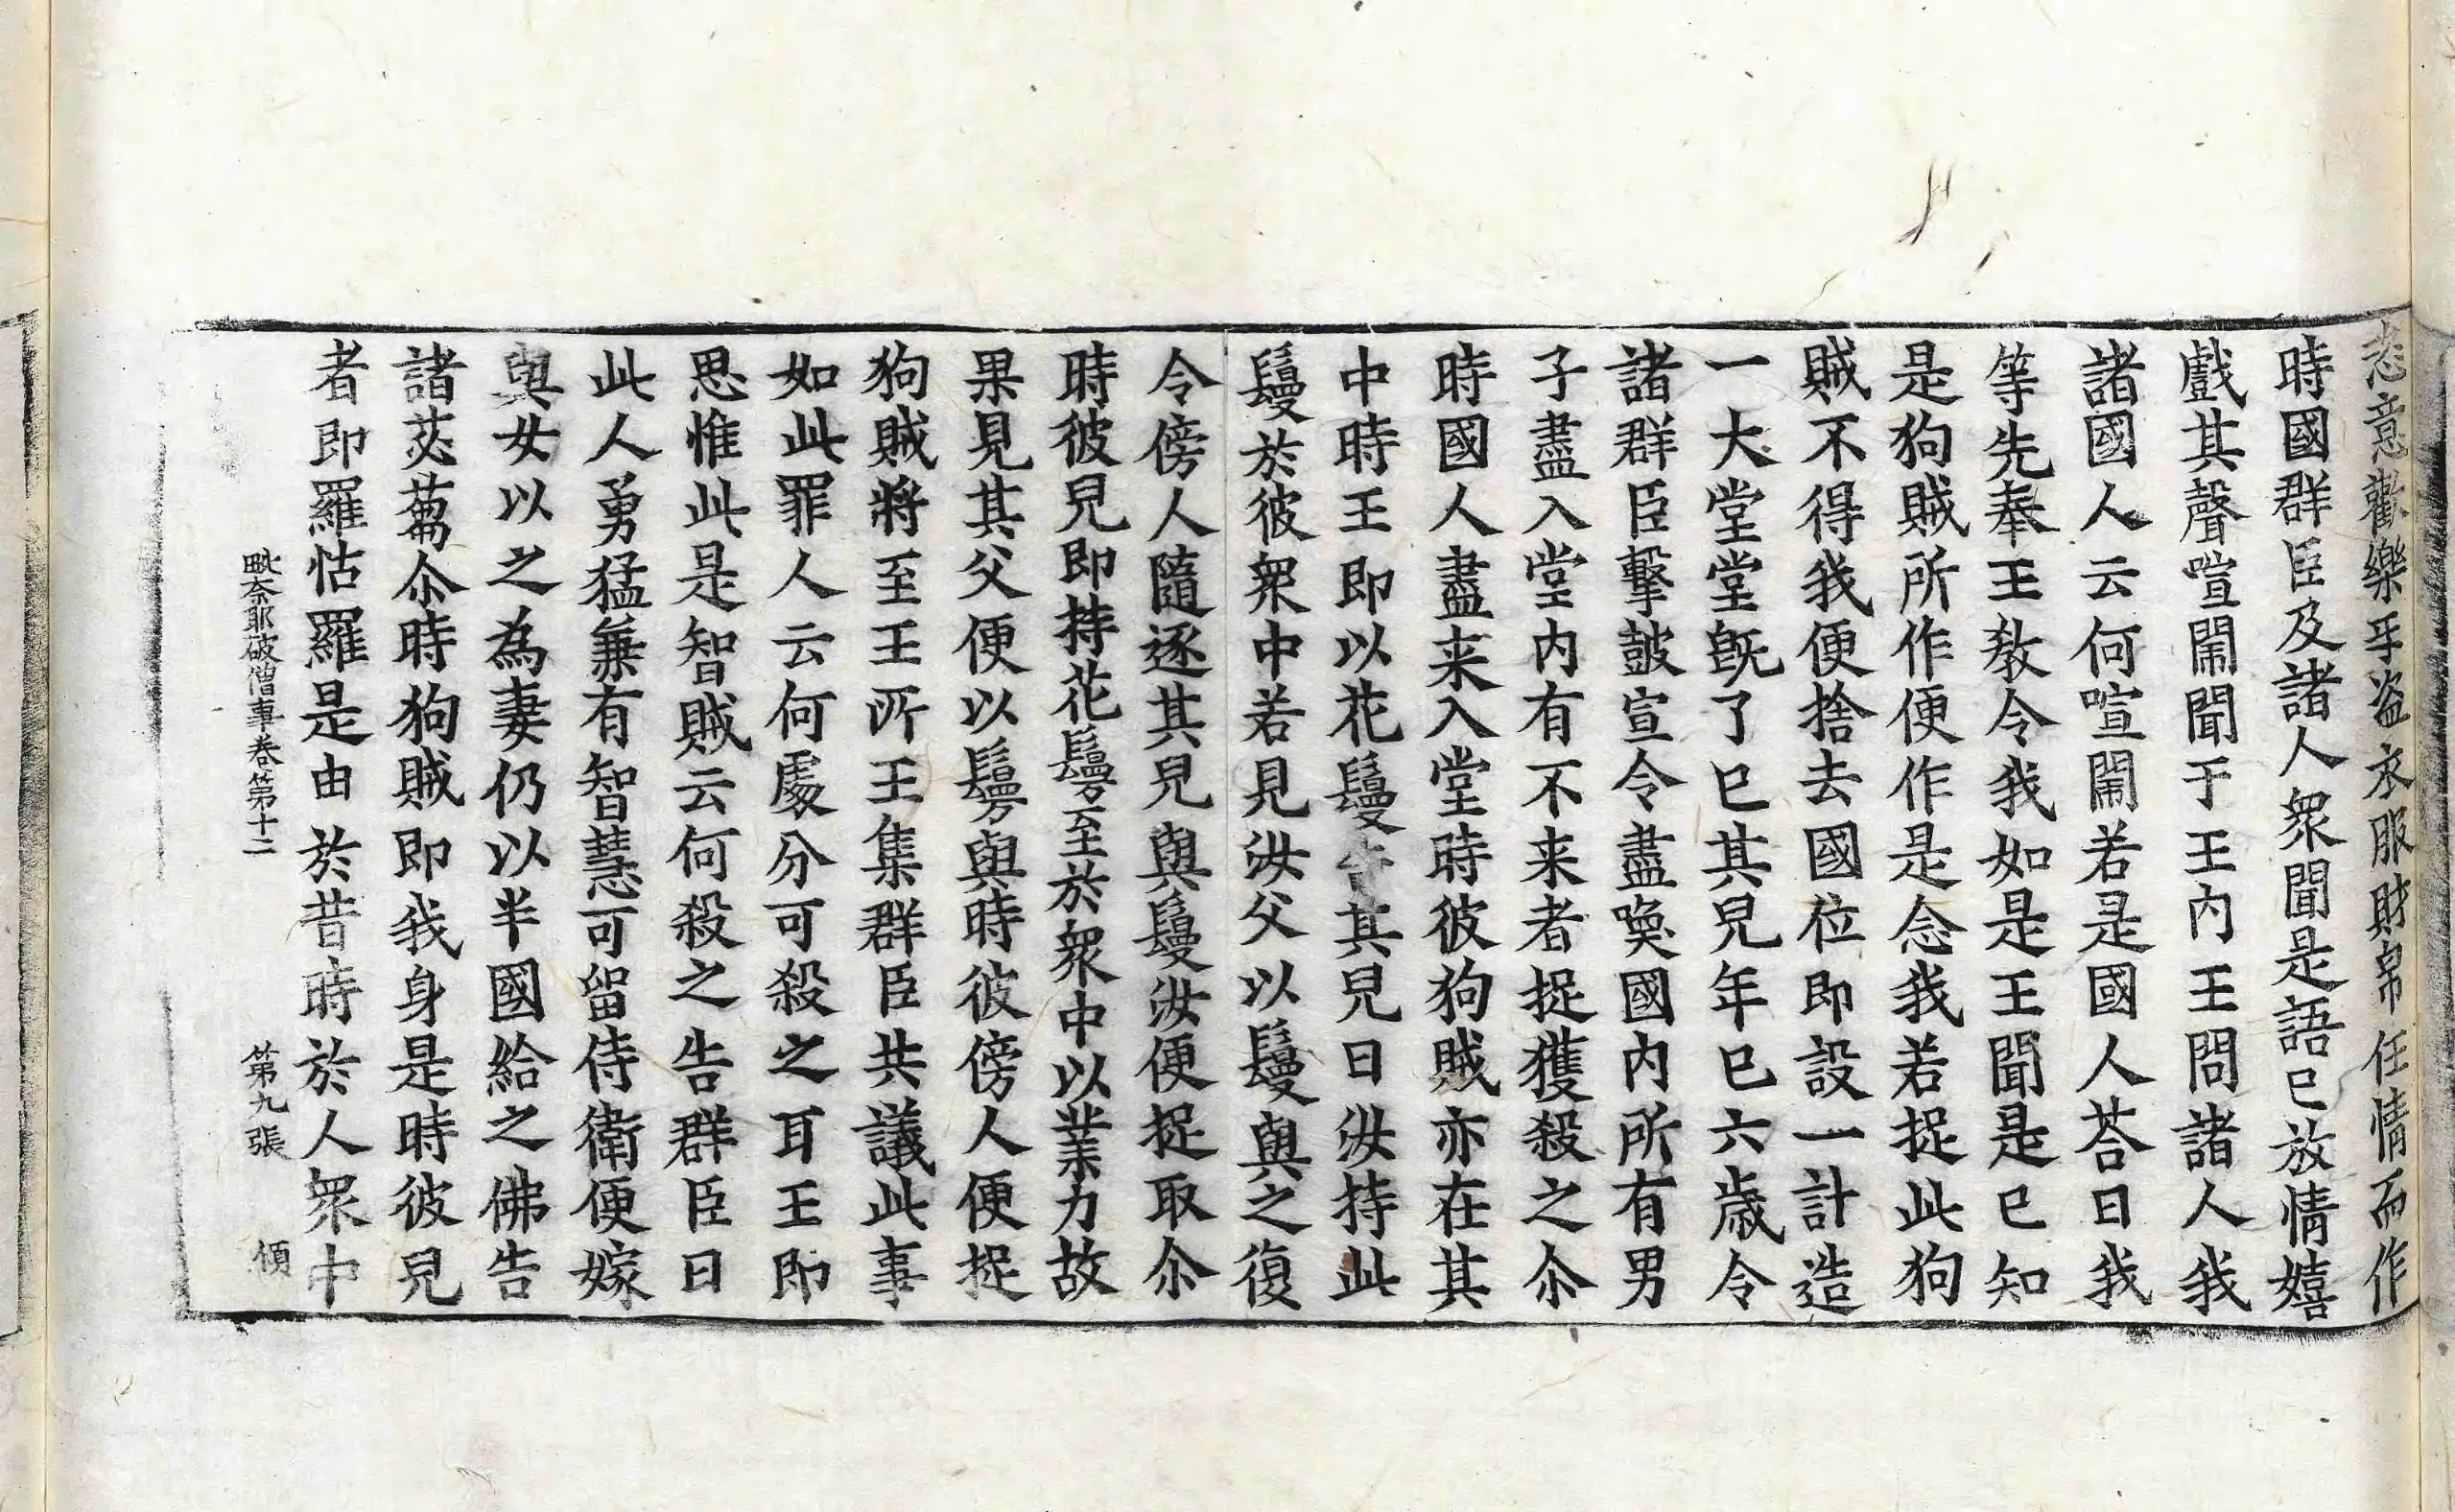 恣意歡樂手盗衣服財帛任情而作
時國群臣及諸人衆聞是語已放情嬉
戲其聲喧鬧聞于王内王問諸人我
諸國人云何喧鬧若是國人荅曰我
等先奉王教令我如是王聞是已知
是狗賊所作便作是念我若捉此狗
賊不得我便捨去國位即設一計造
一大堂堂旣了已其兒年已六歲令
諸群臣擊鼓宣令盡喚國内所有男
子盡入堂内有不来者捉獲殺之尒
時國人盡来入堂時彼狗賊亦在其
中時王即以花鬘告其兒曰汝持此
鬘於彼衆中若見汝父以鬘與之復
令傍人隨逐其兒與鬘汝便捉取尒
時彼兒即持花鬘至於衆中以業力故
果見其父便以鬘與時彼傍人便捉
狗賊將至王所王集群臣共議此事
如此罪人云何處分可殺之耳王即
思惟此是智賊云何殺之告群臣曰
此人勇猛兼有智慧可留侍衛便嫁
與女以之為妻仍以半國給之佛告
諸苾蒭尒時狗賊即我身是時彼兒
者即羅怙羅是由於昔時於人衆中
毗奈耶破僧事卷第十二 第九張 傾